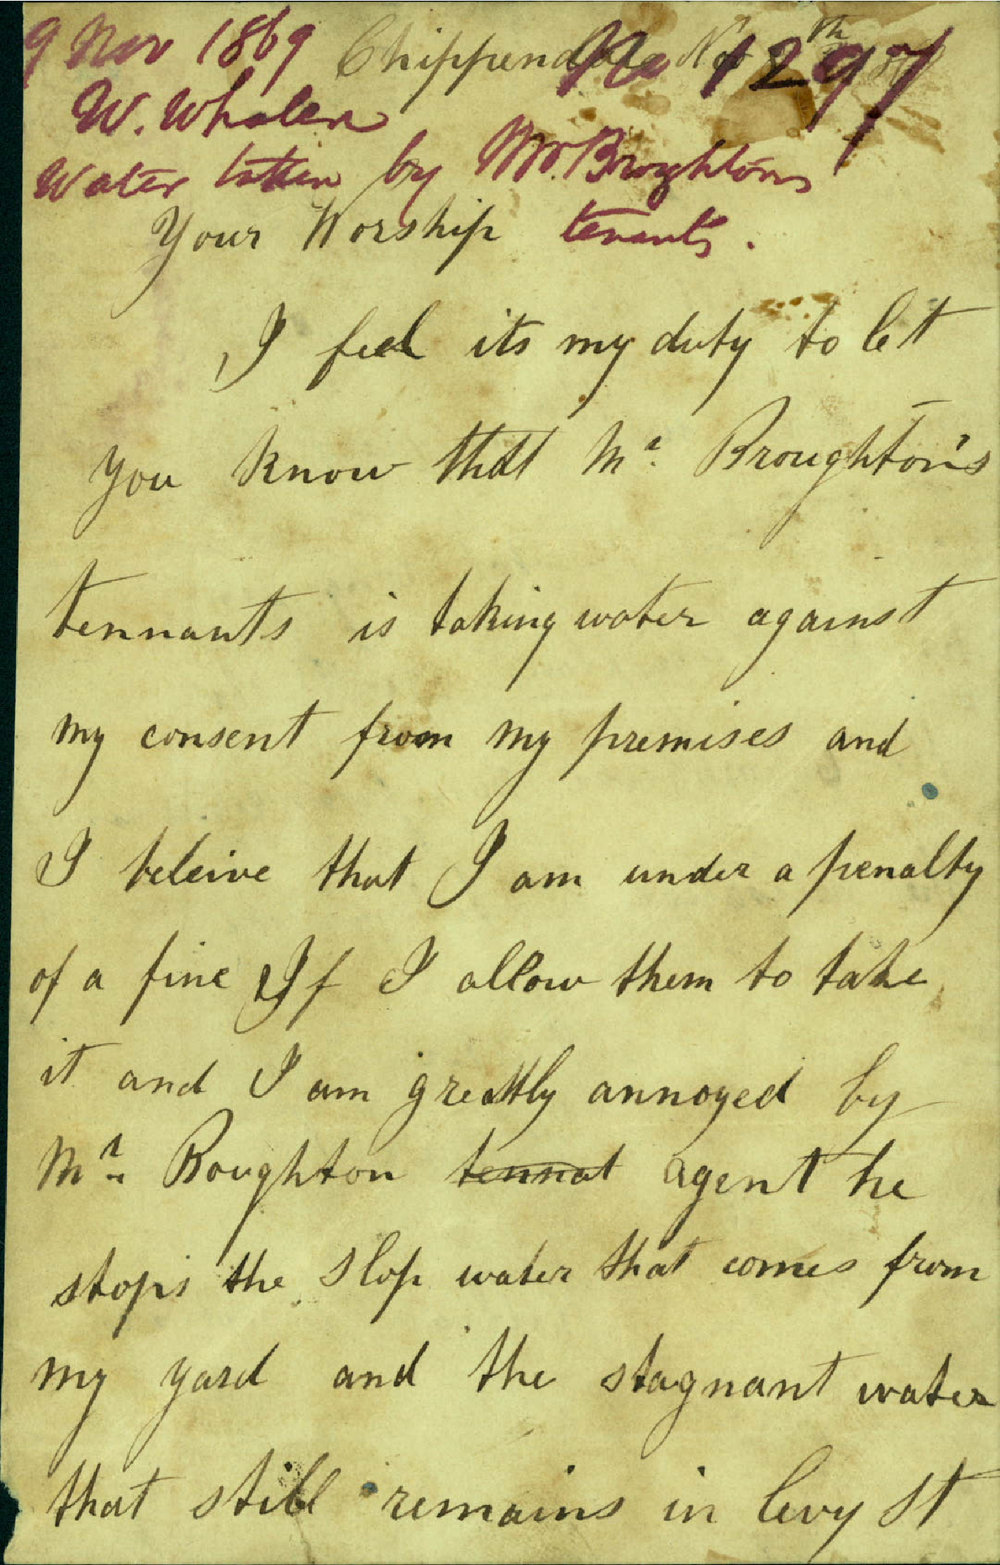 9 Nov 1869 Chippendale Nov 8th No 1297
W. Whalen
Water taken by Mr. Broughtons
Your Worship tenants.
I feel its my duty to let
you know that Mr. Broughton's
tennants is taking water against
my consent from my premises and
I beleive that I am under a penalty
of a fine If I allow them to take
it and I am greatly annoyed by
Mr. Boughton tennat agent he
stops the slop water that comes from
my yard and the stagnant water
that still remains in levy St